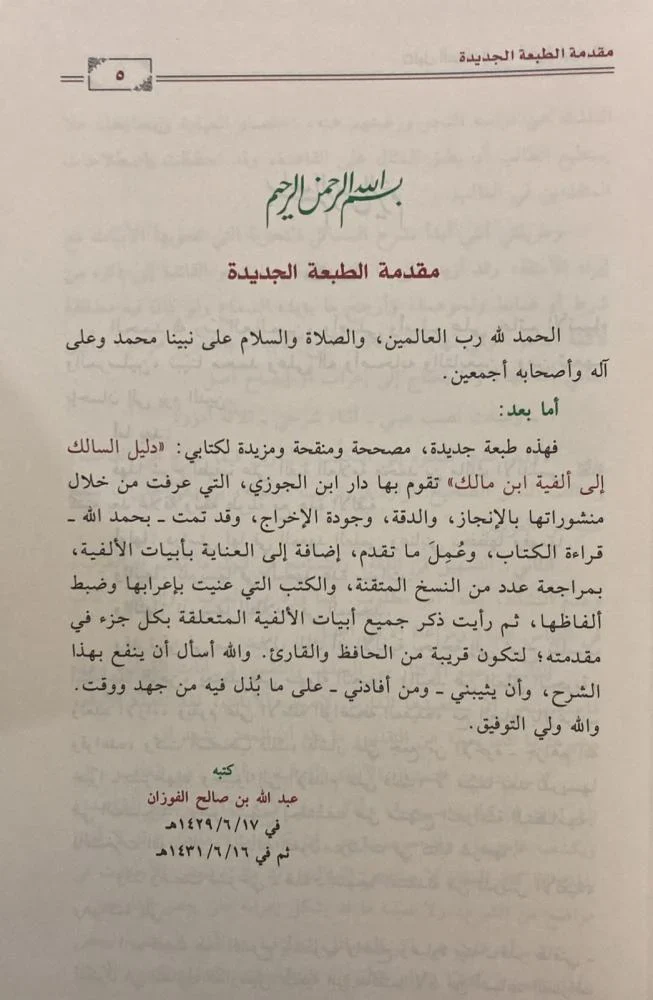 مقدمة الطبعة الجديدة
٥
بسم الله الرحمن الرحيم
مقدمة الطبعة الجديدة
الحمد لله رب العالمين، والصلاة والسلام على نبينا محمد وعلى
آله وأصحابه أجمعين.
أما بعد:
فهذه طبعة جديدة، مصححة ومنقحة ومزيدة لكتابي: «دليل السالك
إلى ألفية ابن مالك» تقوم بها دار ابن الجوزي، التي عرفت من خلال
منشوراتها بالإنجاز، والدقة، وجودة الإخراج، وقد تمت ـ بحمد الله ـ
قراءة الكتاب، وعُمِلَ ما تقدم، إضافة إلى العناية بأبيات الألفية،
بمراجعة عدد من النسخ المتقنة، والكتب التي عنيت بإعرابها وضبط
ألفاظها، ثم رأيت ذكر جميع أبيات الألفية المتعلقة بكل جزء في
مقدمته؛ لتكون قريبة من الحافظ والقارئ. والله أسأل أن ينفع بهذا
الشرح، وأن يثيبني ـ ومن أفادني ـ على ما بُذل فيه من جهد ووقت.
والله ولي التوفيق.
كتبه
عبد الله بن صالح الفوزان
في ١٤٢٩/٦/١٧هـ
ثم في ١٤٣١/٦/١٦هـ